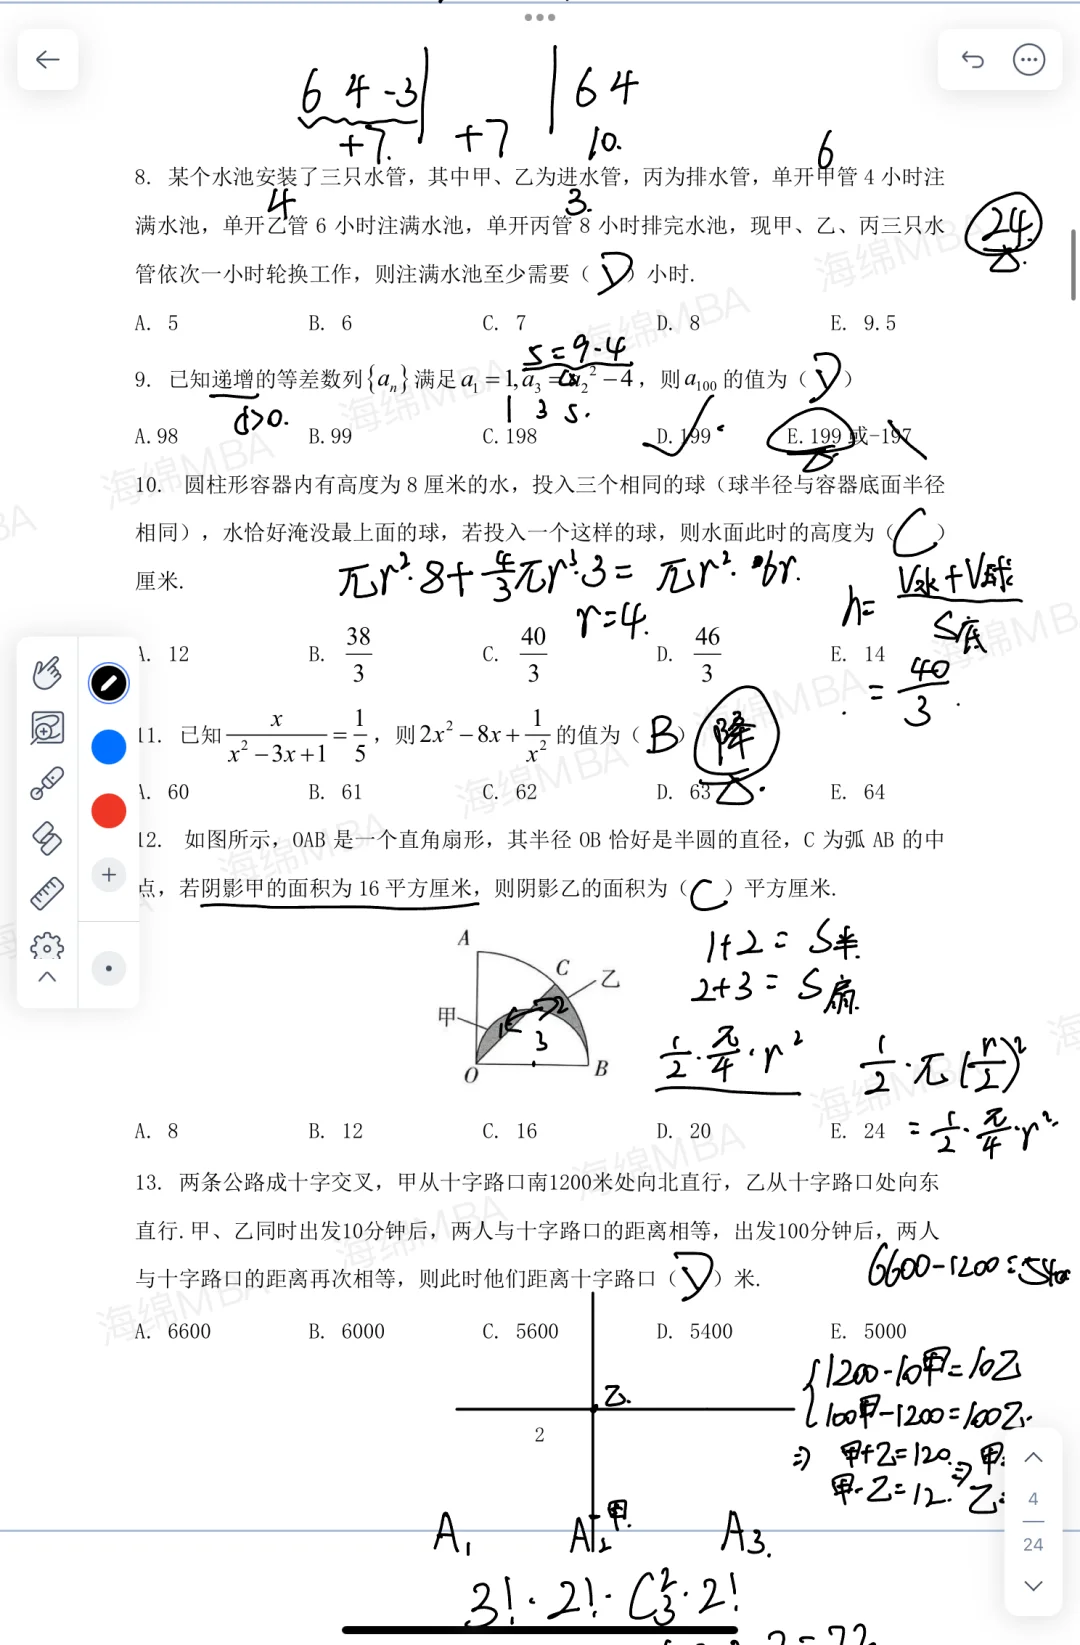 6 4 -3 | | 64
+7. +7 10.
6
8. 某个水池安装了三只水管，其中甲、乙为进水管，丙为排水管，单开甲管 4 小时注
4 3.
满水池，单开乙管 6 小时注满水池，单开丙管 8 小时排完水池，现甲、乙、丙三只水
24.
管依次一小时轮换工作，则注满水池至少需要（ D ）小时.
A. 5 B. 6 C. 7 D. 8 E. 9.5
5=9-4
9. 已知递增的等差数列{aₙ}满足a₁=1,a₃=a₂²-4，则a₁₀₀的值为（ D ）
d>0. 1 3 5.
A.98 B.99 C.198 D.199 E.199或-197
10. 圆柱形容器内有高度为 8 厘米的水，投入三个相同的球（球半径与容器底面半径
相同），水恰好淹没最上面的球，若投入一个这样的球，则水面此时的高度为（ C ）
厘米. πr²·8+4/3πr³·3=πr²·6r. h=(V水+V球)/S底
r=4.
A. 12 B. 38/3 C. 40/3 D. 46/3 E. 14
=40/3.
11. 已知 x/(x²-3x+1)=1/5，则2x²-8x+1/x²的值为（ B ） 降
A. 60 B. 61 C. 62 D. 63 E. 64
12. 如图所示，OAB 是一个直角扇形，其半径 OB 恰好是半圆的直径，C 为弧 AB 的中
点，若阴影甲的面积为 16 平方厘米，则阴影乙的面积为（ C ）平方厘米.
1+2=S半.
2+3=S扇.
A
C
乙
甲
1 2
3
O B
1/2·π/4·r² 1/2·π(r/2)²
=1/2·π/4·r²
A. 8 B. 12 C. 16 D. 20 E. 24
13. 两条公路成十字交叉，甲从十字路口南1200米处向北直行，乙从十字路口处向东
直行.甲、乙同时出发10分钟后，两人与十字路口的距离相等，出发100分钟后，两人
与十字路口的距离再次相等，则此时他们距离十字路口（ D ）米.
6600-1200=5400
A. 6600 B. 6000 C. 5600 D. 5400 E. 5000
1200-10甲=10乙
乙.
100甲-1200=100乙.
2
⇒ 甲+乙=120. ⇒ 甲
甲-乙=12. 乙=
甲.
A₁ A₂ A₃.
3!·2!·C₃²·2!
2=72
4
24
海绵MBA
海绵MBA
海绵MBA
海绵MBA
海绵MBA
海绵MBA
海绵MBA
海绵MBA
海绵MBA
海绵MBA
海绵MBA
海绵MBA
海绵MBA